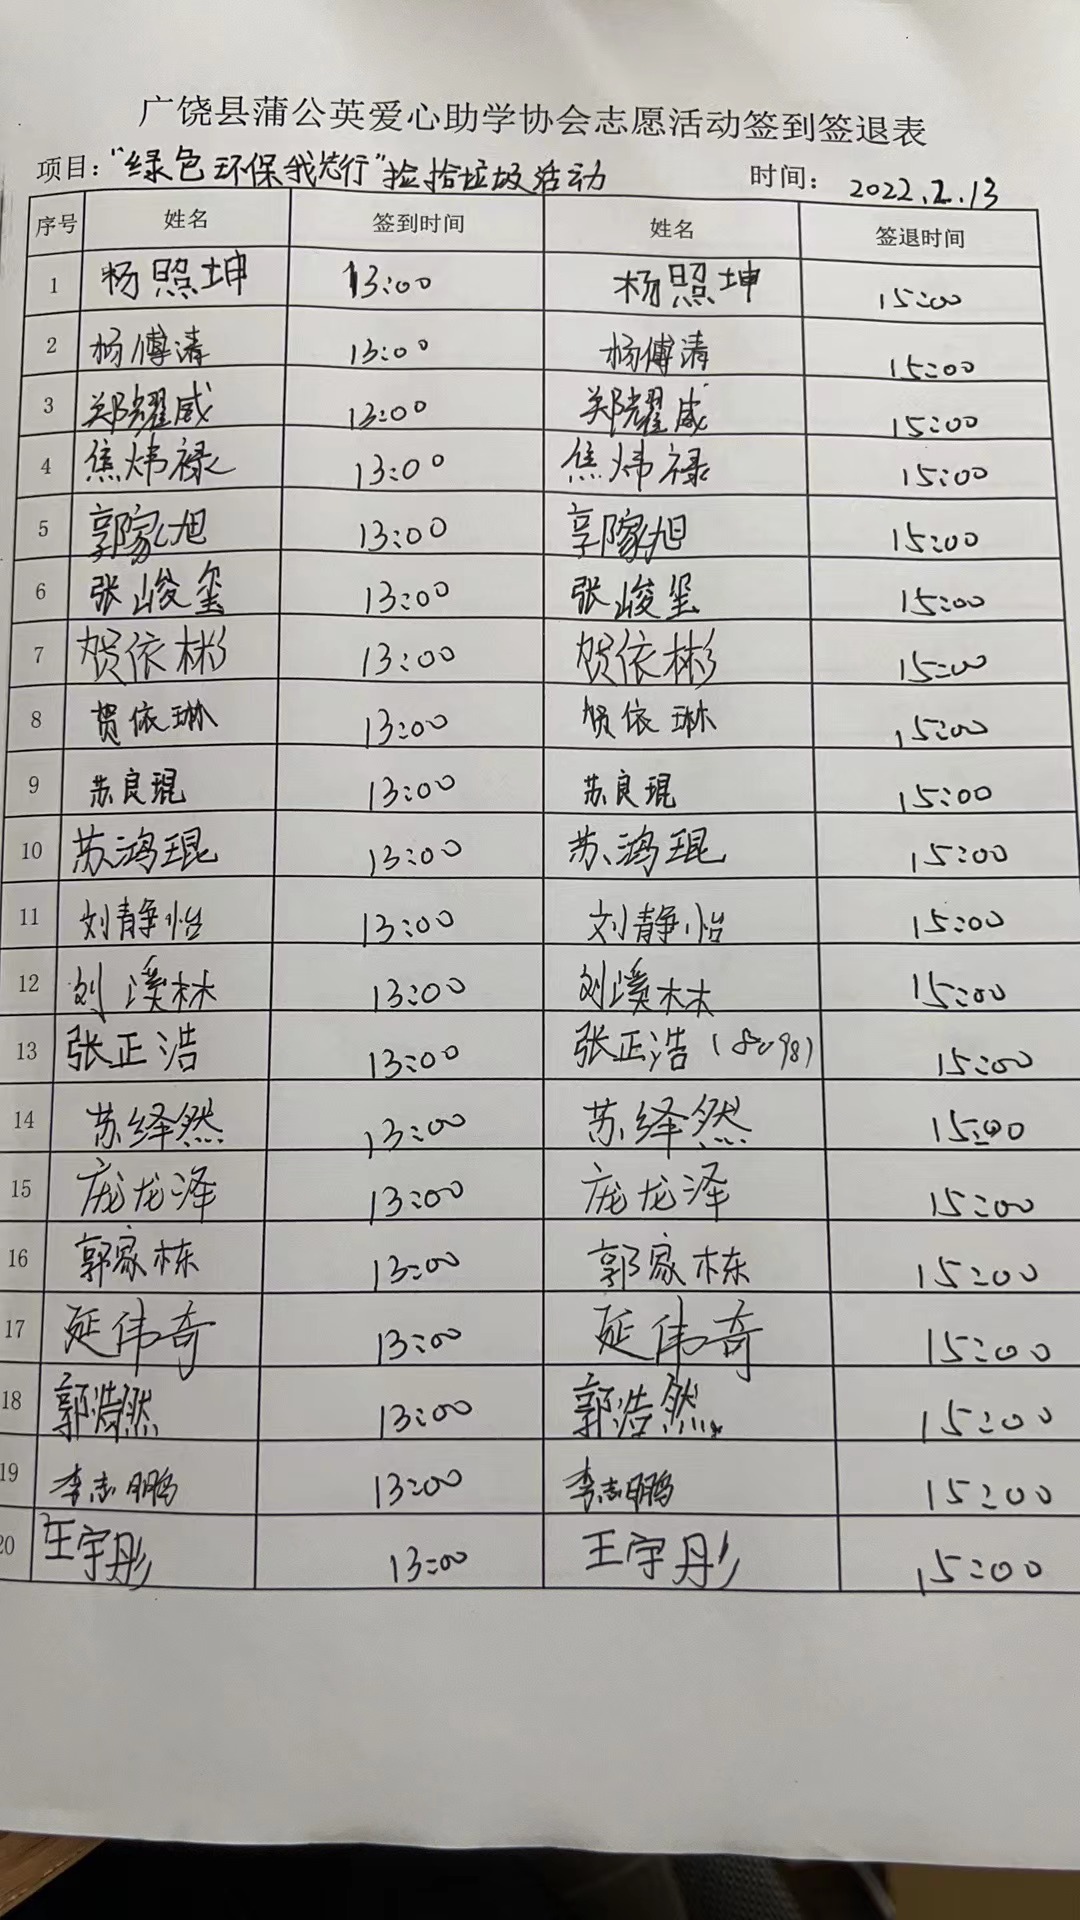 广饶县蒲公英爱心助学协会志愿活动签到签退表
项目："绿色环保我先行"捡拾垃圾活动 时间：2022.2.13
序号 姓名 签到时间 姓名 签退时间
1 杨照坤 13:00 杨照坤 15:00
2 杨傅清 13:00 杨傅清 15:00
3 郑耀威 13:00 郑耀威 15:00
4 焦炜禄 13:00 焦炜禄 15:00
5 郭家旭 13:00 郭家旭 15:00
6 张峻玺 13:00 张峻玺 15:00
7 贺依彬 13:00 贺依彬 15:00
8 贺依琳 13:00 贺依琳 15:00
9 苏良琨 13:00 苏良琨 15:00
10 苏鸿琨 13:00 苏鸿琨 15:00
11 刘静怡 13:00 刘静怡 15:00
12 刘溪林 13:00 刘溪林 15:00
13 张正浩 13:00 张正浩 15:00
14 苏绎然 13:00 苏绎然 15:00
15 庞龙泽 13:00 庞龙泽 15:00
16 郭家栋 13:00 郭家栋 15:00
17 延伟奇 13:00 延伟奇 15:00
18 郭浩然 13:00 郭浩然 15:00
19 李志鹏 13:00 李志鹏 15:00
20 王宇彤 13:00 王宇彤 15:00